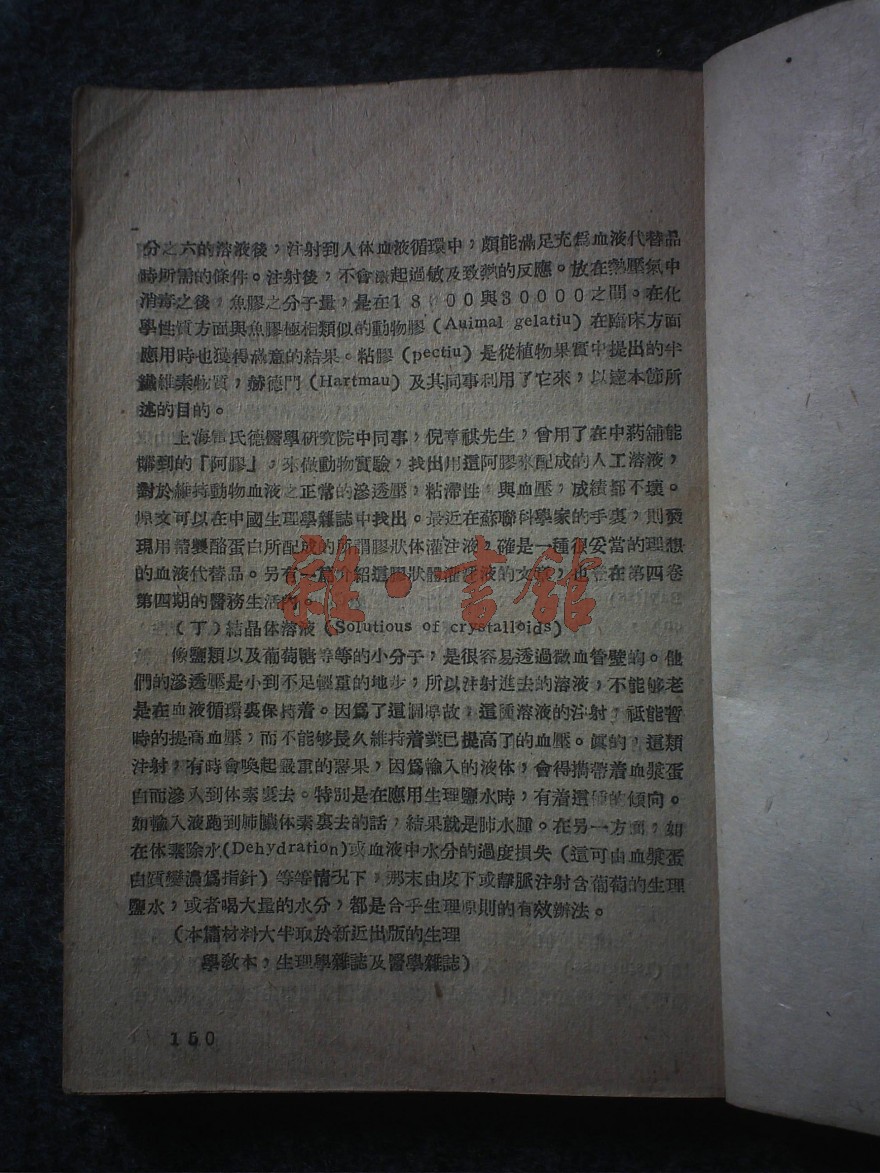 分之六的溶液後，注射到人体血液循環中，頗能滿足充爲血液代替品
時所需的條件。注射後，不會激起過敏及致熱的反應。放在熱壓氣中
消毒之後，魚膠之分子量，是在18000與30000之間。在化
學性質方面與魚膠極相類似的動物膠（Auimal gelatiu）在臨床方面
應用時也獲得滿意的結果。粘膠（pectiu）是從植物果實中提出的半
纖維素物質，赫德門（Hartmau）及其同事利用了它來，以達本節所
述的目的。
上海雷氏德醫學研究院中同事，倪章祺先生，曾用了在中葯舖能
購到的「阿膠」，來做動物實驗，找出用這阿膠來配成的人工溶液，
對於維持動物血液之正常的滲透壓，粘滯性，與血壓，成績都不壞。
原文可以在中國生理學雜誌中找出。最近在蘇聯科學家的手裏，則發
現用精製酪蛋白所配成的所謂膠狀体灌注液，確是一種很妥當的理想
的血液代替品。另有一篇介紹這膠狀體灌注液的文章，也登在第四卷
第四期的醫務生活內。
（丁）結晶体溶液（Solutious of crystalloids）
像鹽類以及葡萄糖等等的小分子，是很容易透過微血管壁的。他
們的滲透壓是小到不足輕重的地步，所以注射進去的溶液，不能够老
是在血液循環裏保持着。因爲了這個緣故，這種溶液的注射，祗能暫
時的提高血壓，而不能够長久維持着業已提高了的血壓。眞的，這類
注射，有時會喚起嚴重的惡果，因爲輸入的液体，會得攜帶着血漿蛋
白而滲入到体素裏去。特別是在應用生理鹽水時，有着這種的傾向。
如輸入液跑到肺臟体素裏去的話，結果就是肺水腫。在另一方面，如
在体素除水(Dehydration)或血液中水分的過度損失（這可由血漿蛋
白質變濃爲指針）等等情況下，那末由皮下或靜脈注射含葡萄的生理
鹽水，或者喝大量的水分，都是合乎生理原則的有效辦法。
（本篇材料大半取於新近出版的生理
學敎本，生理學雜誌及醫學雜誌）
150
雜·書館